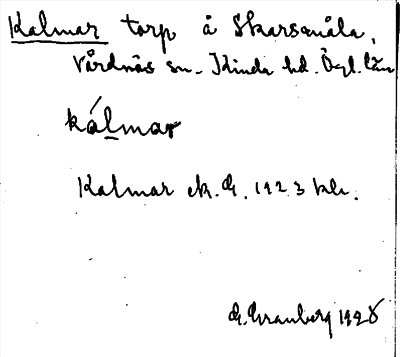 Kalmar torp å Skarsmåla,
Vårdnäs sn. Kinda hd. Ögl. län
kálmar
Kalmar ek. G. 1923 kbr.
G. Granberg 1928